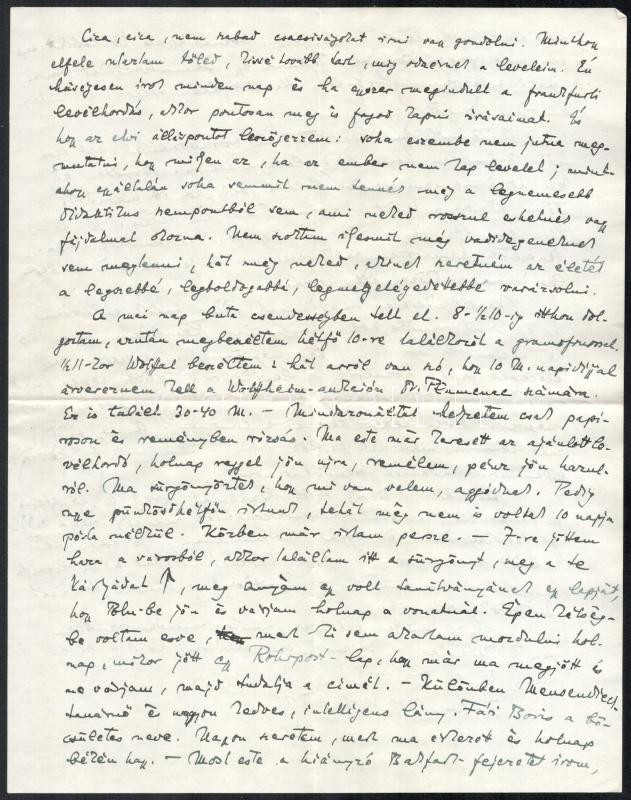 Cica, cica, nem szabad csacsiságokat irni vagy gondolni. Minthogy
elfele utaztam tőled, kissé tovább tart, míg odaérnek a leveleim. Én
hűségesen irok minden nap és ha egyszer megindult a frankfurti
levélhordás, akkor pontosan meg is fogod kapni irásaimat. És
hogy az elvi álláspontot leszögezzem: soha eszembe nem jutna meg-
mutatni, hogy milyen az, ha az ember nem kap levelet; mint-
ahogy egyáltalán soha semmit nem tennék még a legnemesebb
didaktikus szempontból sem, ami neked rosszul eshetnék vagy
fájdalmat okozna. Nem szoktam ilyesmit még vadidegeneknek
sem megtenni, hát még neked, akinek szeretném az életét
a legszebbé, legboldogabbá, legmegelégedettebbé varázsolni.
A mai nap buta csendességben telt el. 8-½10-ig itthon dol-
goztam, azután megbeszéltem hétfő 10-re találkozót a gramofonossal.
½11-kor Wolffal beszéltem: hát arról van szó, hogy 10 M. napidíjjal
árvereznem kell a Wolffheim-aukción Dr. számára.
Ez is talál! 30-40 M. — Mindazonáltal helyzetem csak papí-
roson és reményben rózsás. Ma este már keresett az ajánlott le-
vélhordó, holnap reggel jön ujra, remélem, pénz jön hazul-
ról. Ma sürgönyöztek, hogy mi van velem, aggódnak. Pedig
pünkösdhétfőn irtunk, tehát még nem is voltak 10 napja
posta nélkül. Közben már irtam persze. — 7-re jöttem
haza a városból, akkor találtam itt a sürgönyt, meg a te
kártyádat ↑, meg anyám egy volt tanítványának egy lapját,
hogy Blu-be jön és várjam holnap a vonatnál. Épen kétség-
be voltam esve, mert ki sem akartam mozdulni hol-
nap, mikor jött egy Rohrpost-lap, hogy már ma megjött és
ne várjam, majd tudatja a cimét. — Különben Mensendieck
tanárnő és nagyon kedves, intelligens lány. Fári Boris a bö-
csületes neve. Nagyon szeretem, mert ma érkezett és holnap
békén hagy. — Most este a hiányzó Bakfark-fejezetet irom,